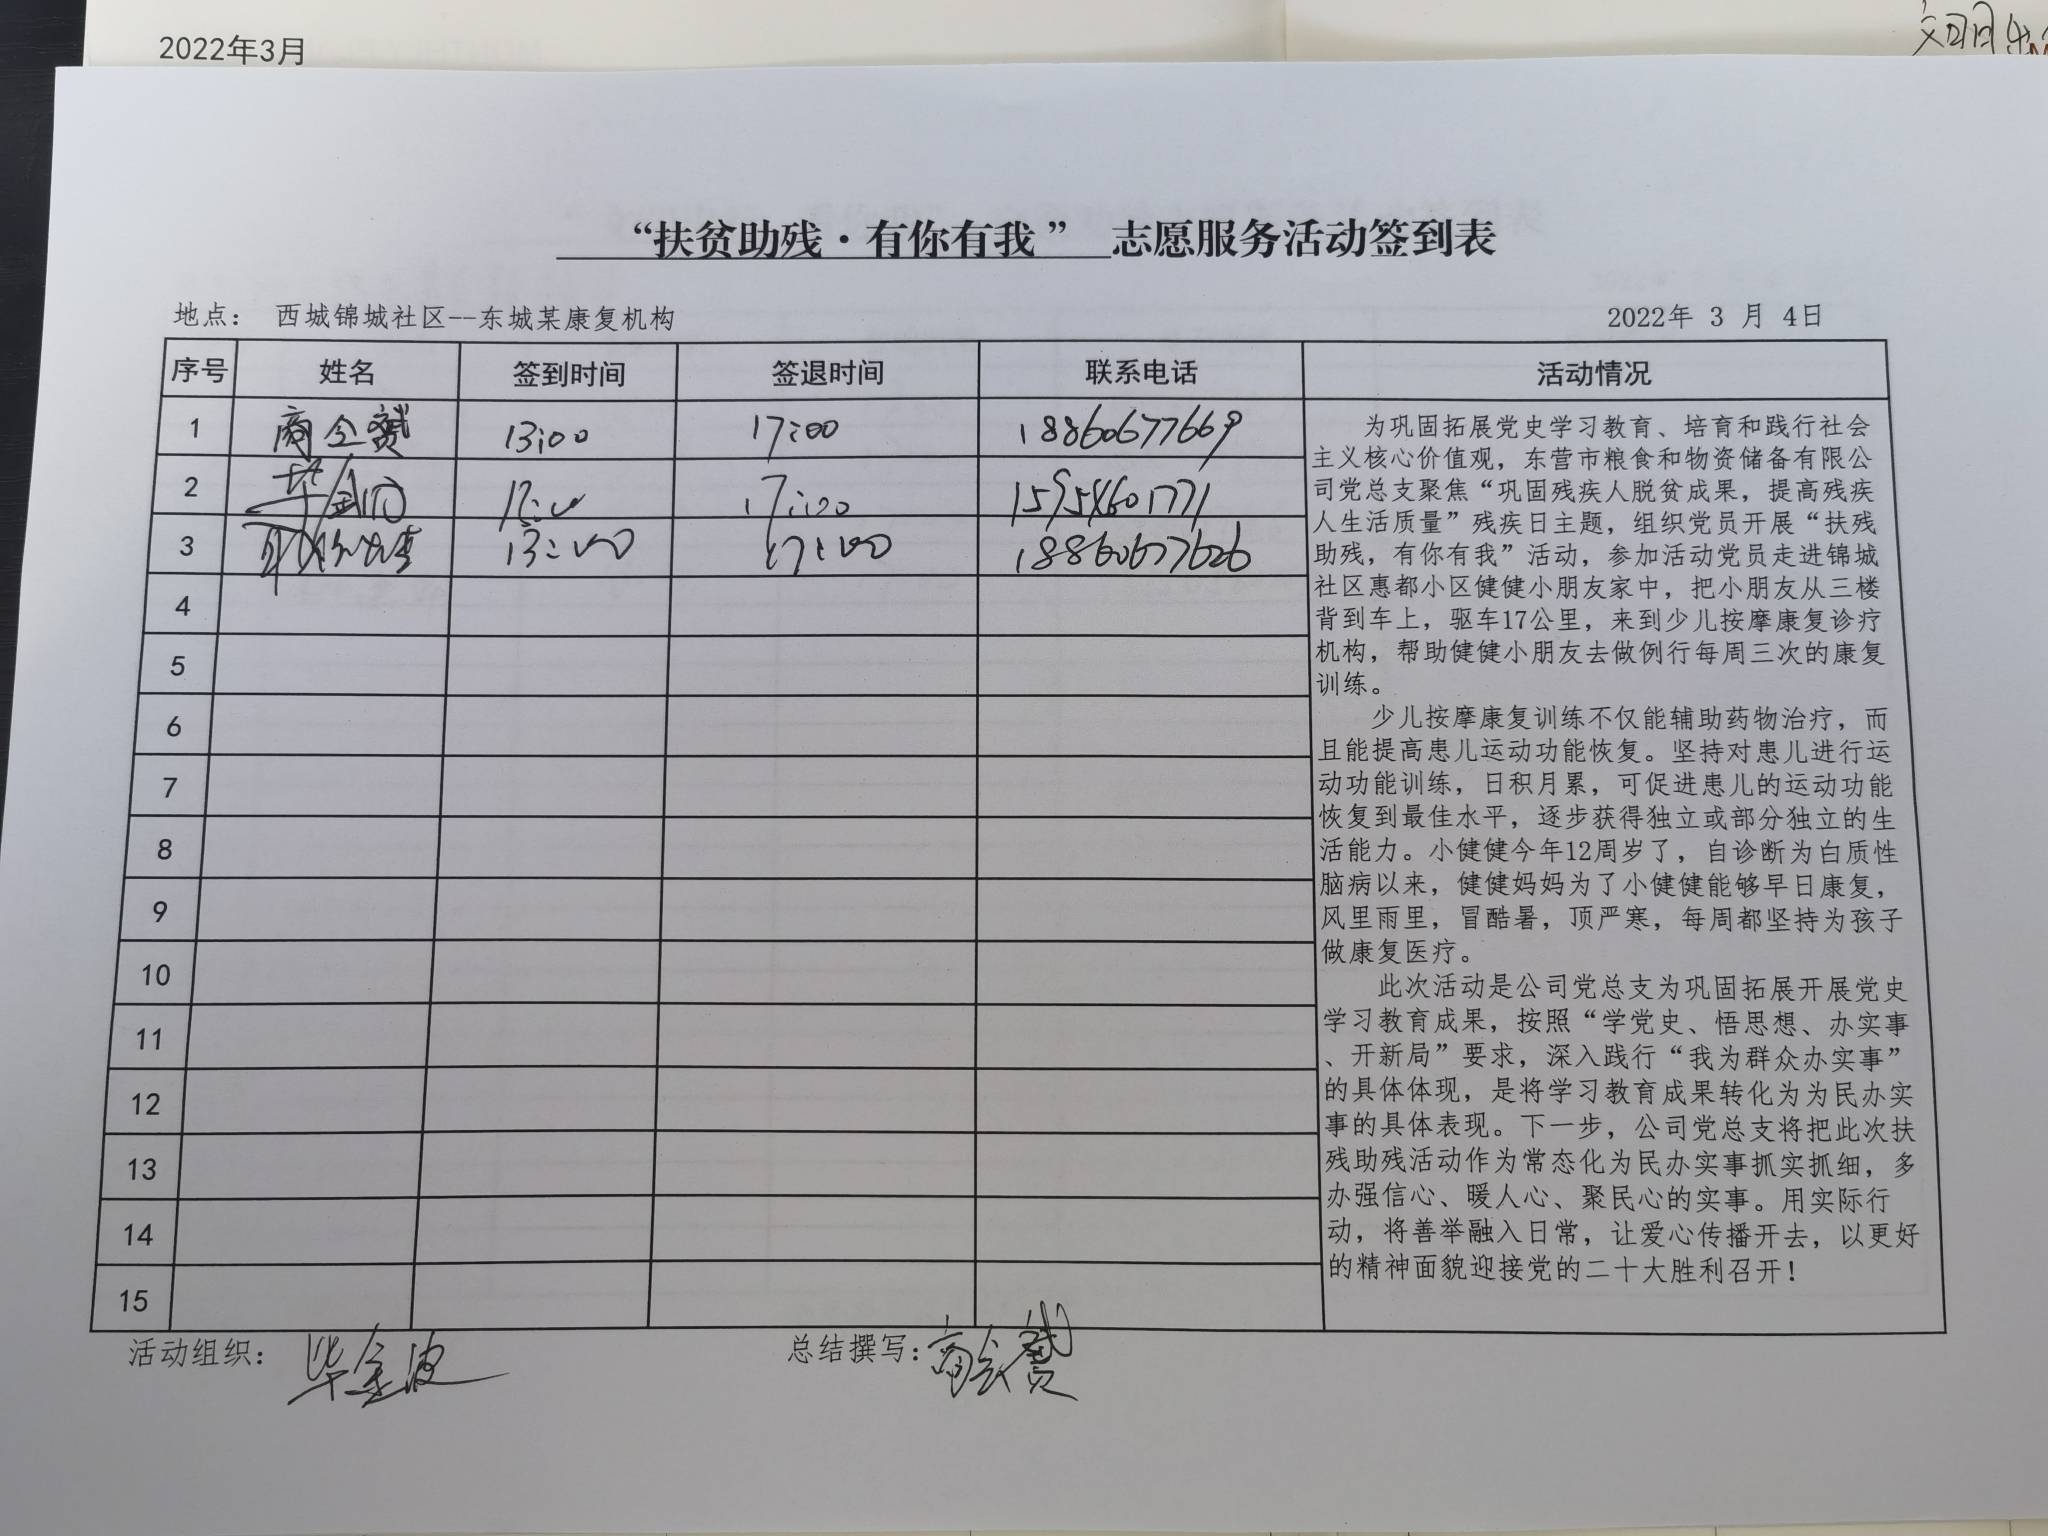 2022年3月
“扶贫助残·有你有我” 志愿服务活动签到表
地点： 西城锦城社区--东城某康复机构 2022年 3 月 4日
序号 姓名 签到时间 签退时间 联系电话 活动情况
1 13:00 17:00 18860677669
2 13:00 17:00 15954601771
3 13:00 17:00 18860677626
4
5
6
7
8
9
10
11
12
13
14
15
为巩固拓展党史学习教育、培育和践行社会
主义核心价值观，东营市粮食和物资储备有限公
司党总支聚焦“巩固残疾人脱贫成果，提高残疾
人生活质量”残疾日主题，组织党员开展“扶残
助残，有你有我”活动，参加活动党员走进锦城
社区惠都小区健健小朋友家中，把小朋友从三楼
背到车上，驱车17公里，来到少儿按摩康复诊疗
机构，帮助健健小朋友去做例行每周三次的康复
训练。
少儿按摩康复训练不仅能辅助药物治疗，而
且能提高患儿运动功能恢复。坚持对患儿进行运
动功能训练，日积月累，可促进患儿的运动功能
恢复到最佳水平，逐步获得独立或部分独立的生
活能力。小健健今年12周岁了，自诊断为白质性
脑病以来，健健妈妈为了小健健能够早日康复，
风里雨里，冒酷暑，顶严寒，每周都坚持为孩子
做康复医疗。
此次活动是公司党总支为巩固拓展开展党史
学习教育成果，按照“学党史、悟思想、办实事
、开新局”要求，深入践行“我为群众办实事”
的具体体现，是将学习教育成果转化为为民办实
事的具体表现。下一步，公司党总支将把此次扶
残助残活动作为常态化为民办实事抓实抓细，多
办强信心、暖人心、聚民心的实事。用实际行
动，将善举融入日常，让爱心传播开去，以更好
的精神面貌迎接党的二十大胜利召开！
活动组织： 毕金波 总结撰写：